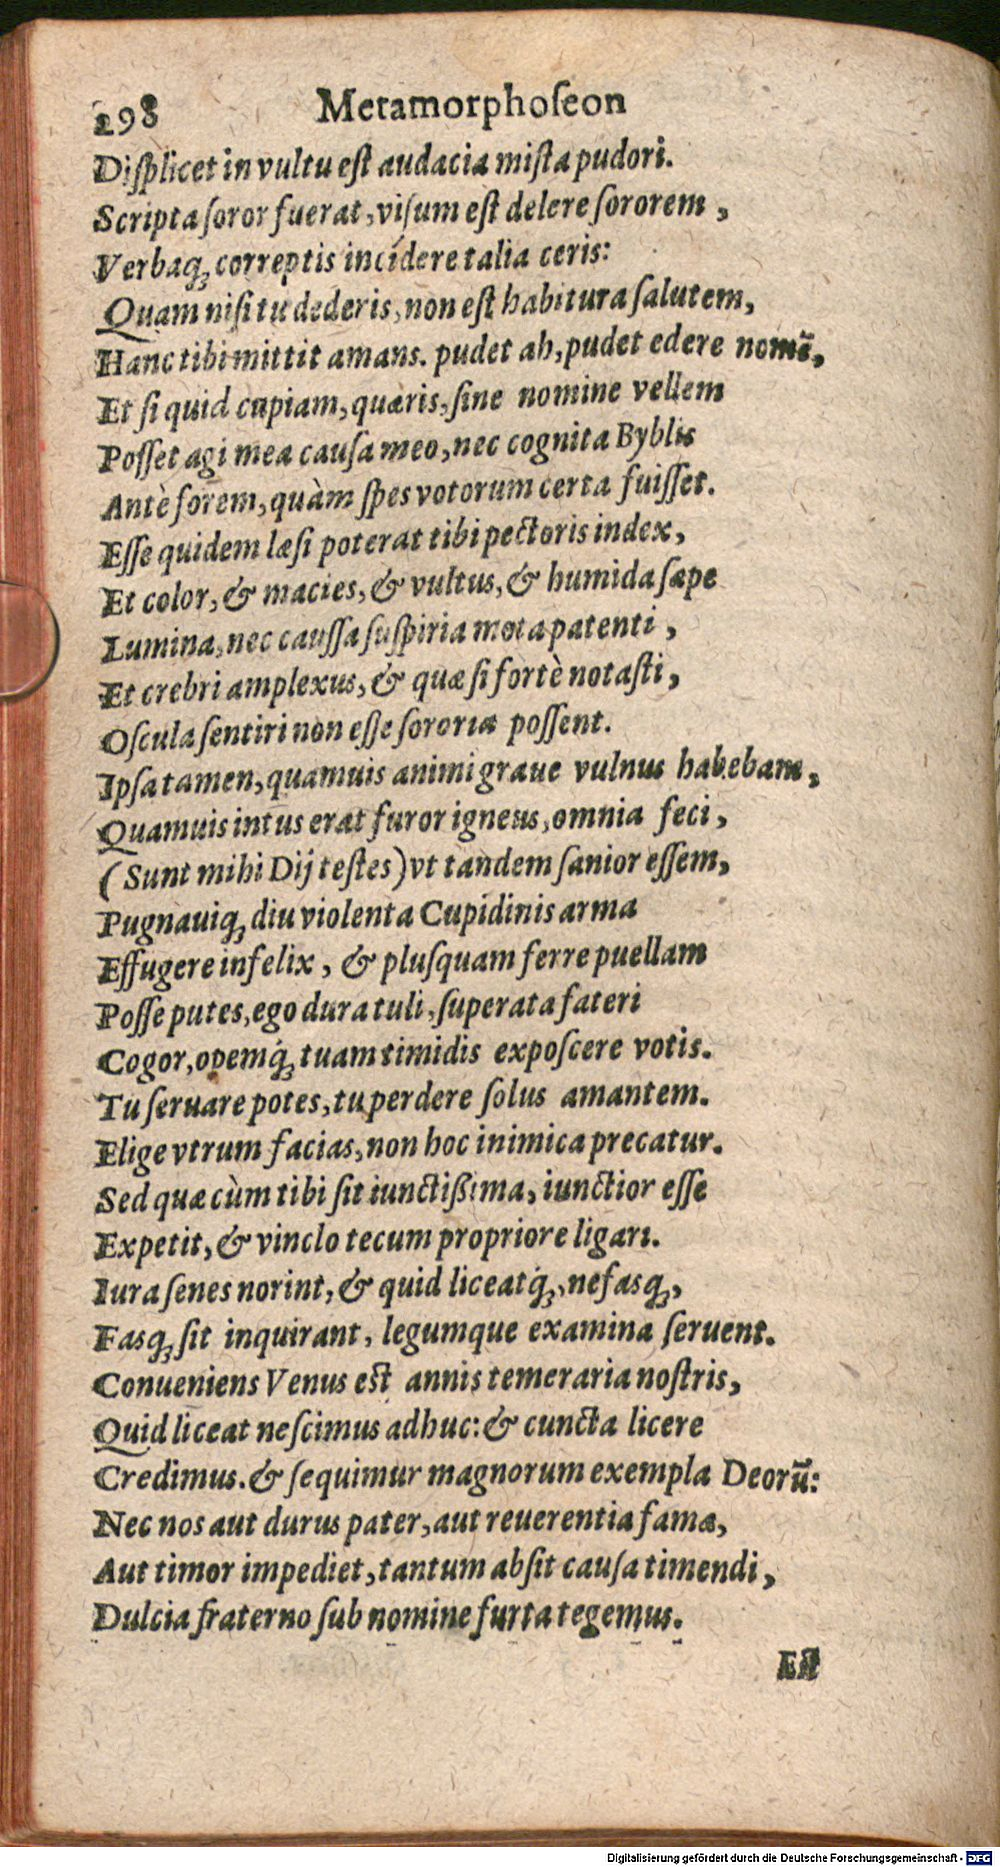 298 Metamorphoſeon
Diſplicet in vultu eſt audacia miſta pudori.
Scripta ſoror fuerat, viſum eſt delere ſororem,
Verbaq́; correptis incidere talia ceris:
Quam niſi tu dederis, non eſt habitura ſalutem,
Hanc tibi mittit amans. pudet ah, pudet edere nomẽ,
Et ſi quid cupiam, quæris, ſine nomine vellem
Poſſet agi mea cauſa meo, nec cognita Byblis
Antè forem, quàm ſpes votorum certa fuiſſet.
Eſſe quidem læſi poterat tibi pectoris index,
Et color, & macies, & vultus, & humida ſæpe
Lumina, nec cauſſa ſuſpiria mota patenti,
Et crebri amplexus, & quæ ſi fortè notaſti,
Oſcula ſentiri non eſſe ſororia poſſent.
Ipſa tamen, quamuis animi graue vulnus habebam,
Quamuis intus erat furor igneus, omnia feci,
(Sunt mihi Dij teſtes) vt tandem ſanior eſſem,
Pugnauiq; diu violenta Cupidinis arma
Effugere infelix, & pluſquam ferre puellam
Poſſe putes, ego dura tuli, ſuperata fateri
Cogor, opemq́; tuam timidis expoſcere votis.
Tu ſeruare potes, tu perdere ſolus amantem.
Elige vtrum facias, non hoc inimica precatur.
Sed quæ cùm tibi ſit iunctißima, iunctior eſſe
Expetit, & vinclo tecum propriore ligari.
Iura ſenes norint, & quid liceatq́;, nefasq;,
Fasq; ſit inquirant, legumque examina ſeruent.
Conueniens Venus eſt annis temeraria noſtris,
Quid liceat neſcimus adhuc: & cuncta licere
Credimus. & ſequimur magnorum exempla Deorũ:
Nec nos aut durus pater, aut reuerentia famæ,
Aut timor impediet, tantum abſit cauſa timendi,
Dulcia fraterno ſub nomine furta tegemus.
Digitalisierung gefördert durch die Deutsche Forschungsgemeinschaft - DFG